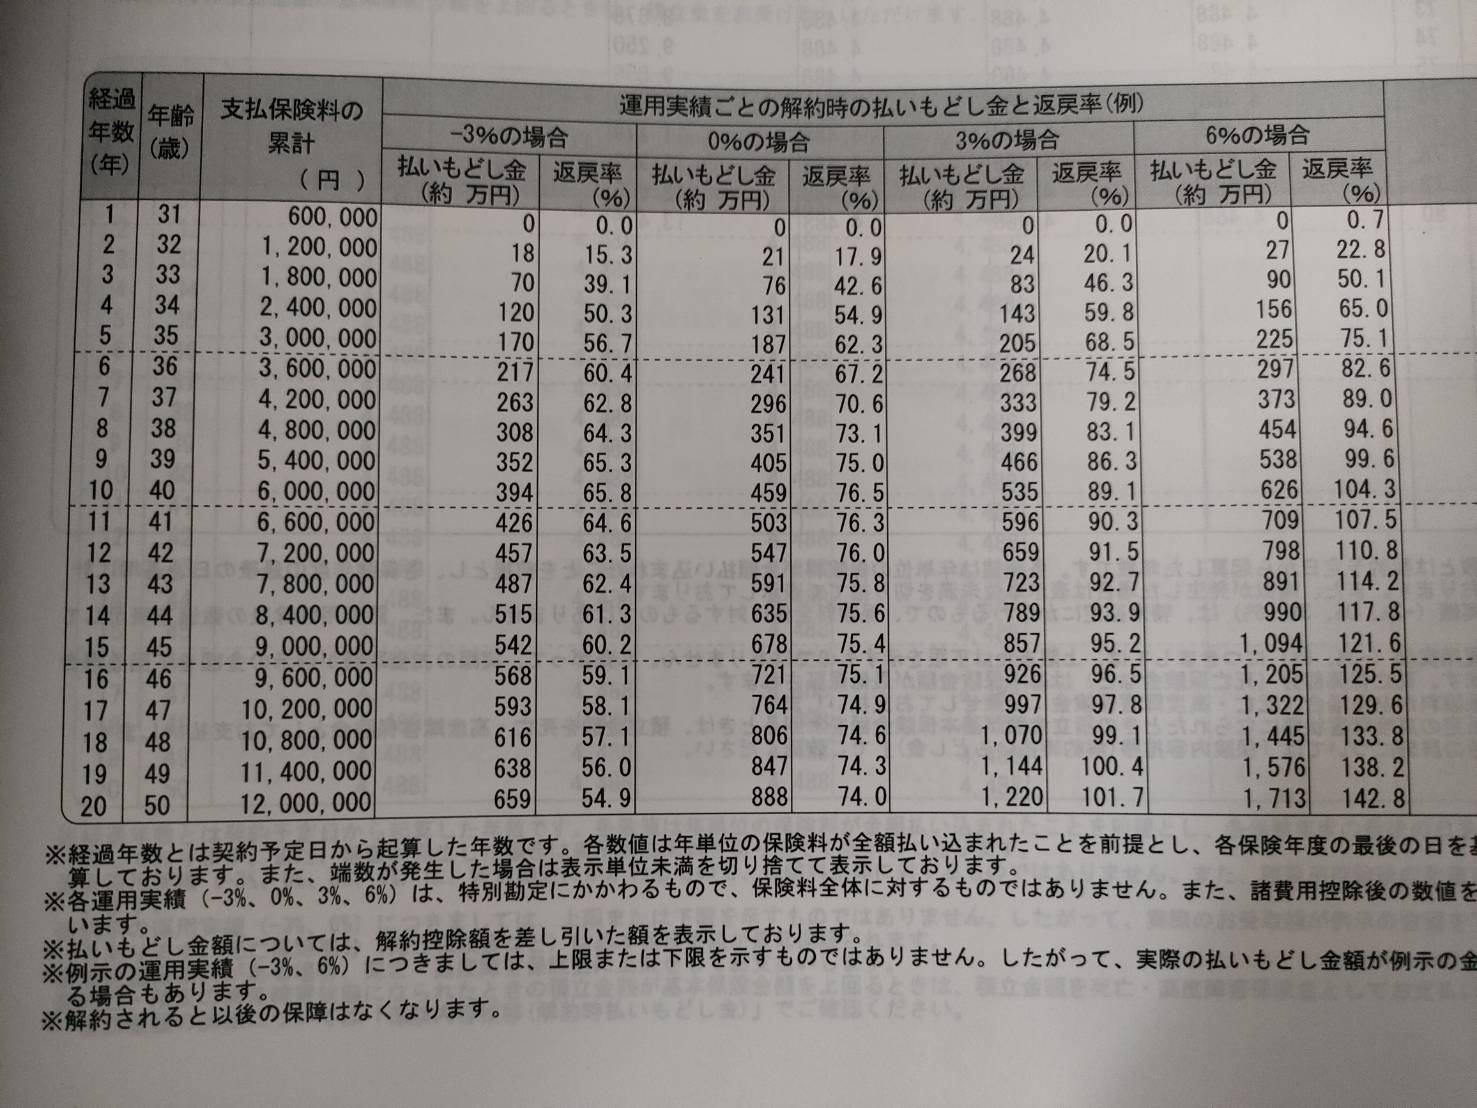 経過年数(年) 年齢(歳) 支払保険料の累計(円) 運用実績ごとの解約時の払いもどし金と返戻率(例)
-3%の場合 0%の場合 3%の場合 6%の場合
払いもどし金(約 万円) 返戻率(%) 払いもどし金(約 万円) 返戻率(%) 払いもどし金(約 万円) 返戻率(%) 払いもどし金(約 万円) 返戻率(%)
1 31 600,000 0 0.0 0 0.0 0 0.0 0 0.7
2 32 1,200,000 18 15.3 21 17.9 24 20.1 27 22.8
3 33 1,800,000 70 39.1 76 42.6 83 46.3 90 50.1
4 34 2,400,000 120 50.3 131 54.9 143 59.8 156 65.0
5 35 3,000,000 170 56.7 187 62.3 205 68.5 225 75.1
6 36 3,600,000 217 60.4 241 67.2 268 74.5 297 82.6
7 37 4,200,000 263 62.8 296 70.6 333 79.2 373 89.0
8 38 4,800,000 308 64.3 351 73.1 399 83.1 454 94.6
9 39 5,400,000 352 65.3 405 75.0 466 86.3 538 99.6
10 40 6,000,000 394 65.8 459 76.5 535 89.1 626 104.3
11 41 6,600,000 426 64.6 503 76.3 596 90.3 709 107.5
12 42 7,200,000 457 63.5 547 76.0 659 91.5 798 110.8
13 43 7,800,000 487 62.4 591 75.8 723 92.7 891 114.2
14 44 8,400,000 515 61.3 635 75.6 789 93.9 990 117.8
15 45 9,000,000 542 60.2 678 75.4 857 95.2 1,094 121.6
16 46 9,600,000 568 59.1 721 75.1 926 96.5 1,205 125.5
17 47 10,200,000 593 58.1 764 74.9 997 97.8 1,322 129.6
18 48 10,800,000 616 57.1 806 74.6 1,070 99.1 1,445 133.8
19 49 11,400,000 638 56.0 847 74.3 1,144 100.4 1,576 138.2
20 50 12,000,000 659 54.9 888 74.0 1,220 101.7 1,713 142.8
※経過年数とは契約予定日から起算した年数です。各数値は年単位の保険料が全額払い込まれたことを前提とし、各保険年度の最後の日を
算しております。また、端数が発生した場合は表示単位未満を切り捨てて表示しております。
※各運用実績(-3%、0%、3%、6%)は、特別勘定にかかわるもので、保険料全体に対するものではありません。また、諸費用控除後の数値を
います。
※払いもどし金額については、解約控除額を差し引いた額を表示しております。
※例示の運用実績(-3%、6%)につきましては、上限または下限を示すものではありません。したがって、実際の払いもどし金額が例示の金
る場合もあります。
※解約されると以後の保障はなくなります。